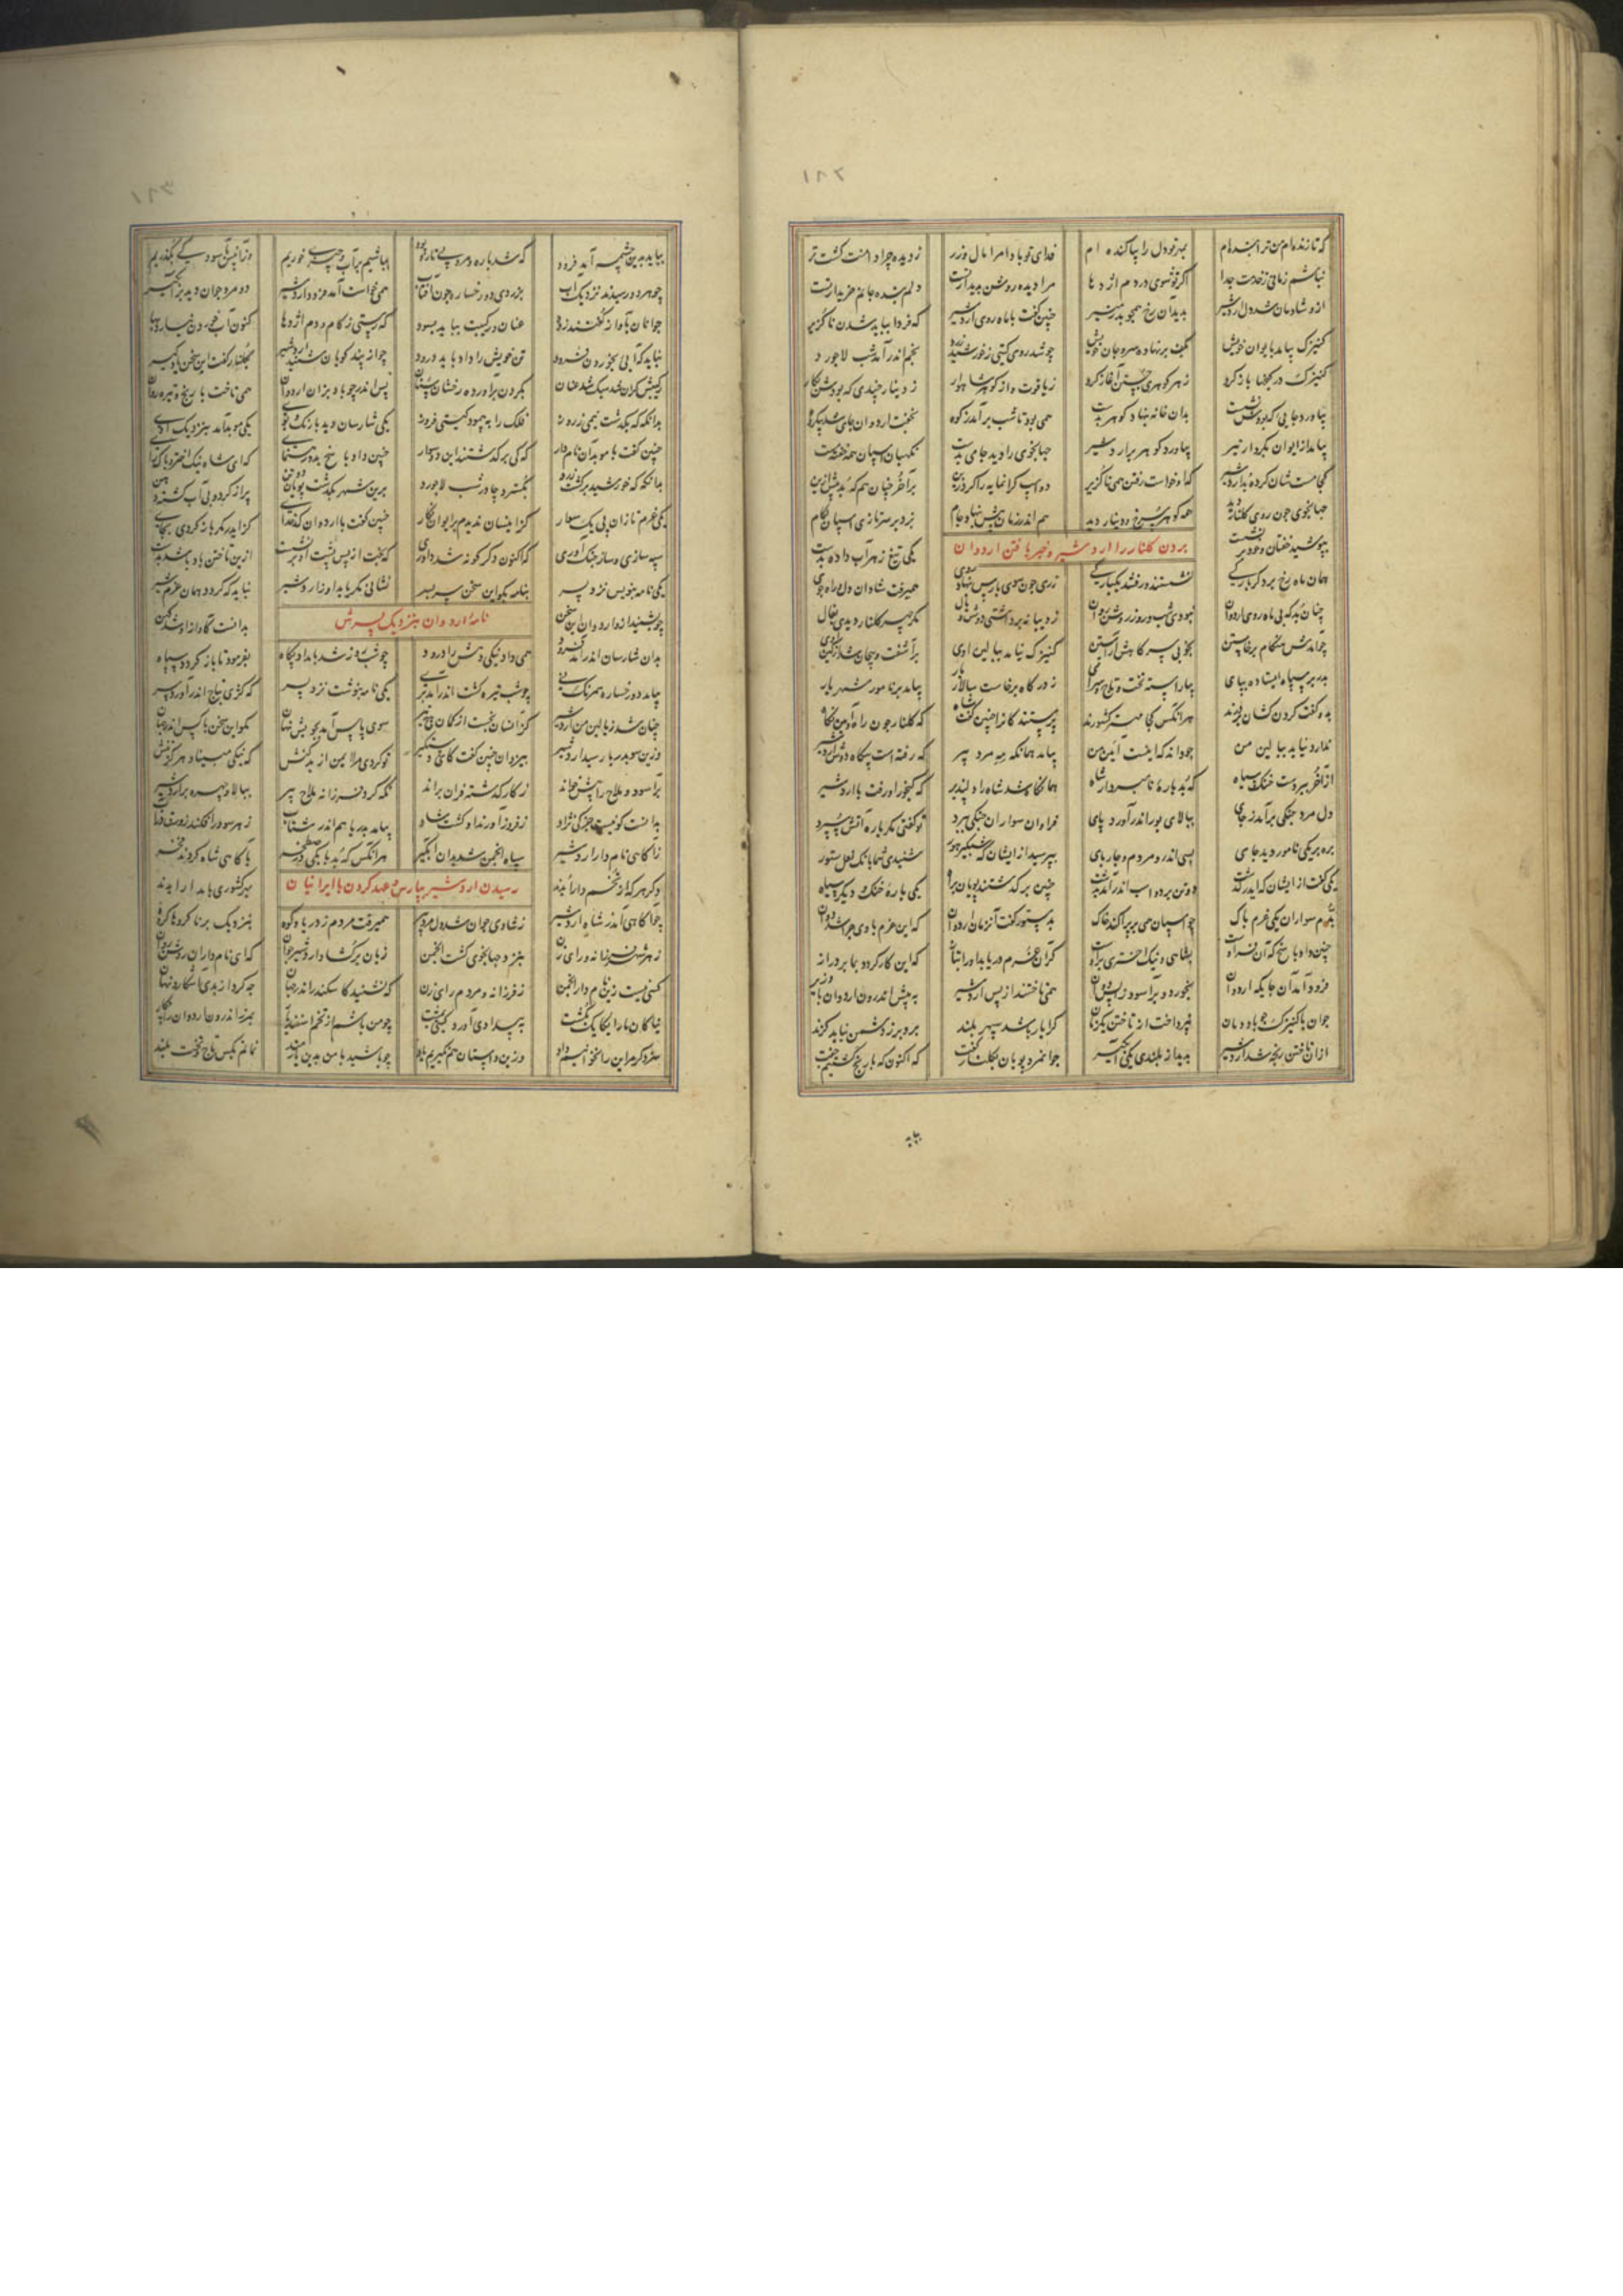 که تا زنده‌ام من ترا بنده‌ام بمهر تو دل را پاکنده ام فدای تو بادا مرا مال و زر ز دیده چرا دامنت گشت تر
نباشم زمانی ز خدمت جدا اگر تو شوی در دم اژدها مرا دیده روشن بدیدار تست دلم بنده جانم خریدار تست
ازو شادمان شد دل اردشیر بدید آن رخ همچو بدر منیر چنین گفت با ماه روی اردشیر که فردا بباید شدن ناگزیر
کنیزک بیامد بایوان خویش بکف بر نهاده سر و جان خویش چو شد روی گیتی ز خورشید زرد بخم اندر آمد شب لاجورد
کنیزک در گنجها باز کرد ز هر گوهری جستن آغاز کرد ز یاقوت و از گوهر شاهوار ز دینار چندی که بودش بکار
بیاورد جایی که بودش نشست بدان خانه بنهاد گوهر بدست همی بود تا شب برآمد ز کوه بخفت اردوان جای شد بی‌گروه
بیامد از ایوان بکردار تیر بیاورد گوهر بر اردشیر جهانجوی را دید جامی بدست نگهبان اسپان همه خفته مست
کجا مست شان کرده بد اردشیر که او خواست رفتن همی ناگزیر دو اسپ گرانمایه را کرد زین برآخر چنان هم که بد پیش ازین
جهانجوی چون روی گلنار دید همه گوهر سرخ و دینار دید هم اندر زمان پیش بنهاد جام بزد بر سر تازی اسپان لگام
بپوشید خفتان و خود بر نشست یکی تیغ زهر آب داده بدست
بردن گلنار را اردشیر و خبر یافتن اردوان
همان ماه رخ بر دگر بارگی نشستند و رفتند یکبارگی ز ری چون سوی پارس بنهاد روی همیرفت شادان دل و راه جوی
چنان بد که بی ماه روی اردوان نبودی شب و روز روشن روان ز دیبا نه برداشتی دوش و یال مگر چهر گلنار دیدی بفال
چو آمدش هنگام برخاستن بخوبی سر گاهش آراستن کنیزک نیامد ببالین اوی برآشفت و پیچان شد از کین اوی
بدر بر سپاه ایستاده بپای بیاراسته تخت و تاج و سرای ز درگاه برخاست سالار بار بیامد بر نامور شهریار
بدو گفت گردن کشان بر درند هر آنکس کجا مهتر کشورند پرستندگان را چنین گفت شاه که گلنار چون راه و آیین نگاه
ندارد نیاید ببالین من چو داند که اینست آیین من بیامد همانگه مه مرد پیر که رفته است بیگاه دوش اردشیر
از آخر ببردست خنگ و سیاه که بد بارهٔ نامبردار شاه همانگاه شد شاه را دلپذیر که گنجور او رفت با اردشیر
دل مرد جنگی برآمد ز جای ببالای بور اندر آورد پای فراوان سواران جنگی ببرد تو گفتی مگر باره آتش سپرد
بره بر یکی نامور دید جای بسی اندرو مردم و چارپای بپرسید از ایشان که شبگیر هور شنیدی شما بانگ نعل ستور
یکی گفت از ایشان که ایدر گذشت دو تن بر دو اسپ اندر آمد بدشت چنین بر گذشتند پویان براه یکی باره خنگ و دیگر سیاه
بدم سواران یکی غرم پاک چو اسپان همی بر پراکند خاک بدستور گفت آنزمان اردوان که این غرم باوی چرا شد دوان
چنین داد پاسخ که آن فر اوست بشاهی و نیک اختری پر اوست گر آن غرم دریابد او را متاز که این کار گردد بما بر دراز
فرود آمد آن جایگه اردوان بخورد و برآسود و زانپس دوان همی تاختند از پس اردشیر به پیش اندرون اردوان با وزیر
جوان با کنیزک چو باد دمان نپرداخت از تاختن یکزمان کرا یار باشد سپهر بلند برو بر ز دشمن نیاید گزند
ازان تاختن رنجه شد اردشیر بدید از بلندی یکی آبگیر جوانمرد پویان بگلنار گفت که اکنون که با رنج گشتیم جفت
بباید بدین چشمه آمد فرود که شد باره و مرد بی تار و پود بباشیم برآب و چیزی خوریم وز آنپس بآسودگی بگذریم
چو هر دو رسیدند نزدیک آب بزردی دو رخساره چون آفتاب همی خواست آمد فرود اردشیر دو مرد جوان دید بر آبگیر
جوانان بآواز گفتند زود عنان و رکیبت بباید بسود که رستی ز کام و دم اژدها کنون آب خوردن نیارد بها
نباید که آیی بخوردن فرود تن خویش را داد باید درود چو از پندگویان شنید اردشیر بگلنار گفت این سخن یادگیر
رکیبش گران شد سبک شد عنان بگردن برآورده رخشان سنان پس اندر چو باد بزان اردوان همی تاخت با رنج و تیره روان
بدانگه که بگذشت نیمی ز روز فلک را بپیمود گیتی فروز یکی شارسان دید با رنگ و بوی یکی موبد آمد بنزدیک اوی
چنین گفت با موبدان نامدار که کی بر گذشتند این دو سوار چنین داد پاسخ بدو رهنمای که ای شاه نیک اختر و پاک رای
بدانگه که خورشید برگشت زرد بگسترد چادر شب لاجورد برین شهر بگذشت پویان دو تن پر از گرد و بی‌آب گشته دهن
یکی غرم تازان پی یک سوار کز اینسان ندیدم بایوان نگار چنین گفت با اردوان کدخدای کز ایدر مگر باز گردی بجای
سپه سازی و ساز جنگ آوری که اکنون دگرگونه شد داوری که بخت از پس پشت او بر نشست ازین تاختن باد باشد بدست
یکی نامه بنویس نزد پسر بنامه بگو این سخن سربسر نشانی مگر یابد او ز اردشیر نباید که گردد همان غرم شیر
چو بشنید ازو اردوان این سخن بدانست کآواز او شد کهن
نامهٔ اردوان بنزدیک پسرش
بدان شارسان اندر آمد فرود همی داد نیکی دهش را درود چو شب روز شد بامداد پگاه بفرمود تا بازگردد سپاه
بیامد دو رخساره همرنگ نی چو شب تیره گشت اندر آمد بری یکی نامه بنوشت نزد پسر که کژی بباغ اندر آورد بر
چنان شد ز بالین من اردشیر کزانسان نجست از کمان هیچ تیر سوی پارس آمد بجویش نهان مگو این سخن با کس اندر جهان
وزین سو بدریا رسید اردشیر بیزدان چنین گفت کای دستگیر تو کردی مرا ایمن از بدکنش که نیکی مبیناد هرگز تنش
برآسود و ملاح را پیش خواند ز کار گذشته فراوان براند نگه کرد فرزانه ملاح پیر ببالا و چهر و بر اردشیر
بدانست کو نیست جز کی نژاد ز فر و ز اورند او گشت شاد بیامد بدریا هم اندر شتاب ز هر سو درافگند زورق بآب
ز آگاهی نام‌دار اردشیر سپاه انجمن شد بدان آبگیر هر آنکس که بد بابکی در صطخر بآگاهی شاه کردند فخر
رسیدن اردشیر بپارس و عهد کردن با ایرانیان
دگر هر که از تخم دارا بدند بهر کشوری بامدارا بدند
چو آگاهی آمد ز شاه اردشیر ز شادی جوان شد دل مرد پیر همیرفت مردم ز دریا و کوه بنزدیک برنا گروها گروه
ز هر شهر فرزانه و رای زن بنزد جهانجوی گشت انجمن زبان برگشاد اردشیر جوان که ای نامداران روشن روان
کسی نیست زین نامدار انجمن ز فرزانه و مردم رای زن که نشنید کاسکندر اندر جهان چه کرد از بدی آشکار و نهان
نیاکان ما را یکایک بکشت ببیدادی آورد گیتی بمشت چو من باشم از تخم اسفندیار بمرز اندرون اردوان شهریار
سزد گر مر این را نخوانیم داد وزین داستان هم نگیریم یاد چو باشید با من بدین یارمند نمانم بکس تاج و تخت بلند